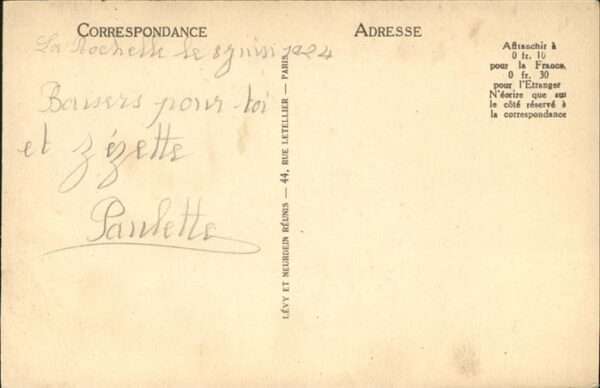 CORRESPONDANCE
La Rochelle le 8 juin 1924
Baisers pour toi
et zézette
Paulette
LÉVY ET NEURDEIN RÉUNIS — 44, RUE LETELLIER — PARIS
ADRESSE
Affranchir à
0 fr. 10
pour la France,
0 fr. 30
pour l'Etranger
N'écrire que sur
le côté réservé à
la correspondance